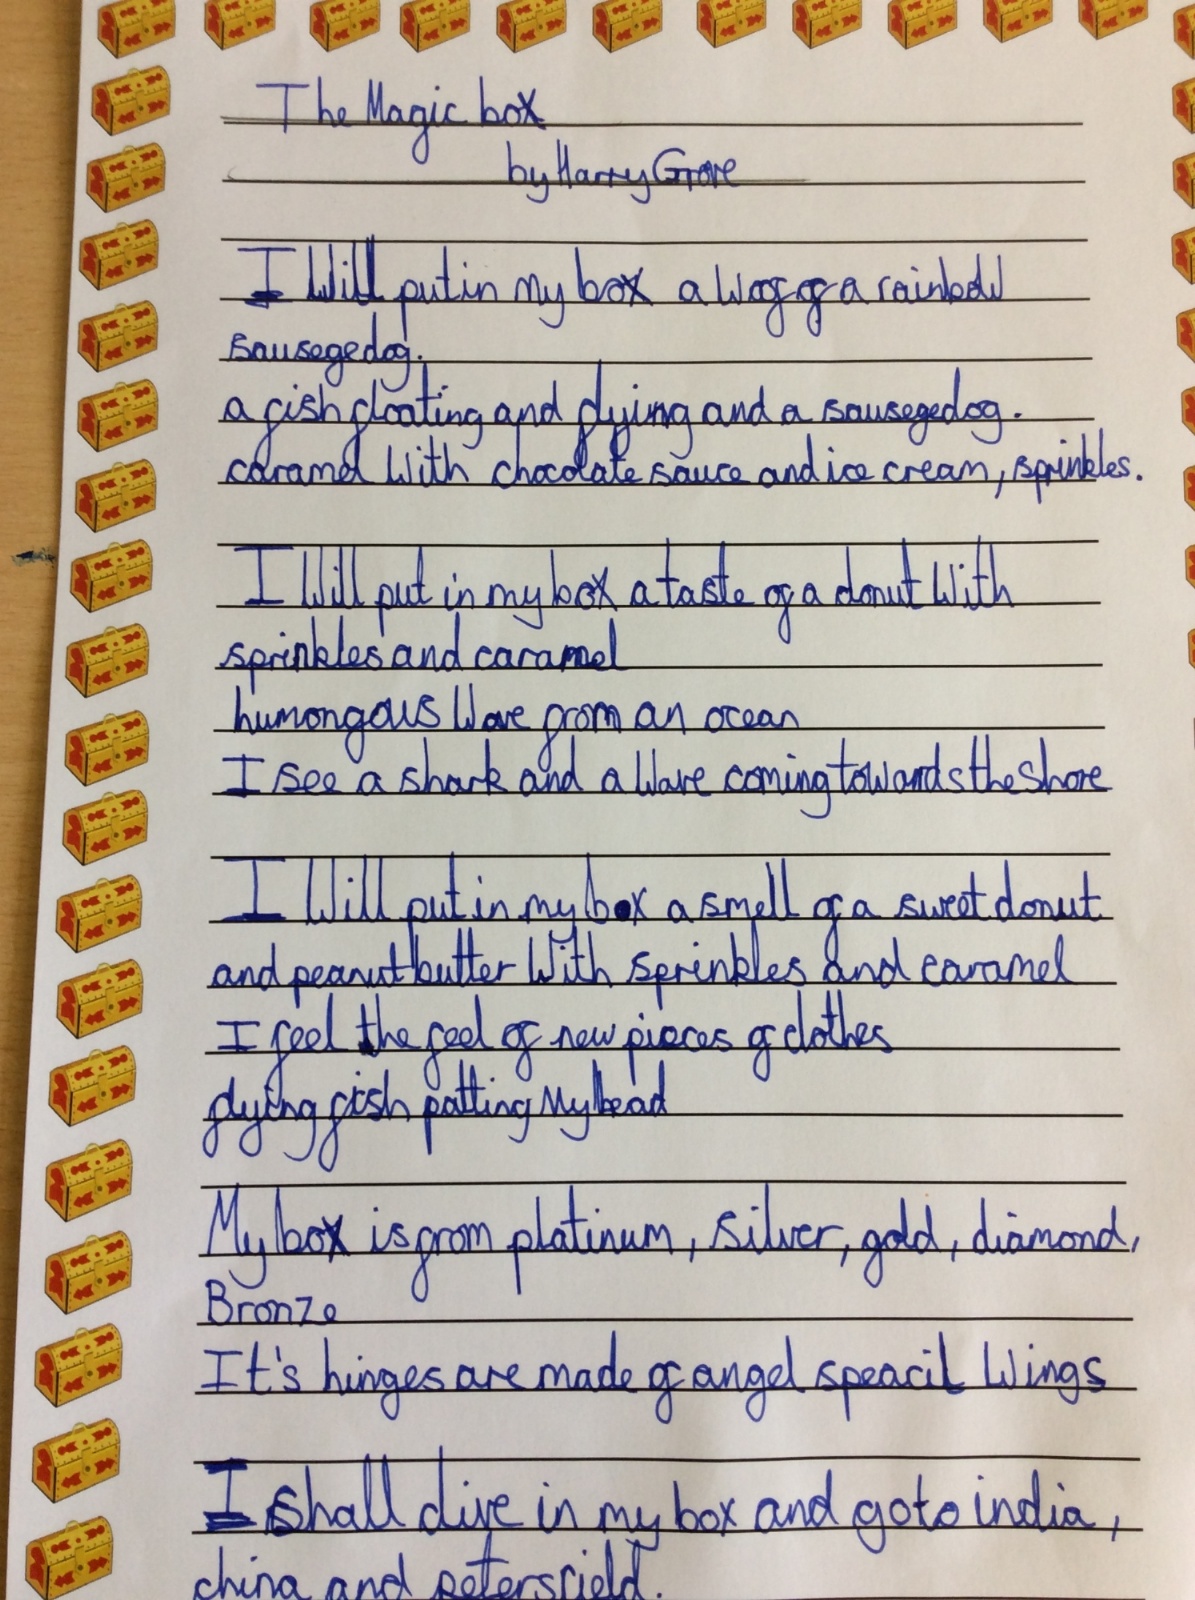 The Magic box
by Harry Grove
I Will put in my box a Woof of a rainboW
sausegedog.
a fish floating and flying and a sausegedog.
caramel With chocolate sauce and ice cream, sprinkles.
I Will put in my box a taste of a donut With
sprinkles and caramel
humongous Wave from an ocean
I see a shark and a Wave coming towards the shore
I Will put in my box a smell of a sweet donut
and peanut butter With sprinkles and caramel
I feel the feel of new pieces of clothes
flying fish patting My head
My box is from platinum, silver, gold, diamond,
Bronze
It's hinges are made of angel speacil Wings
I shall dive in my box and go to india,
china and petersfield.